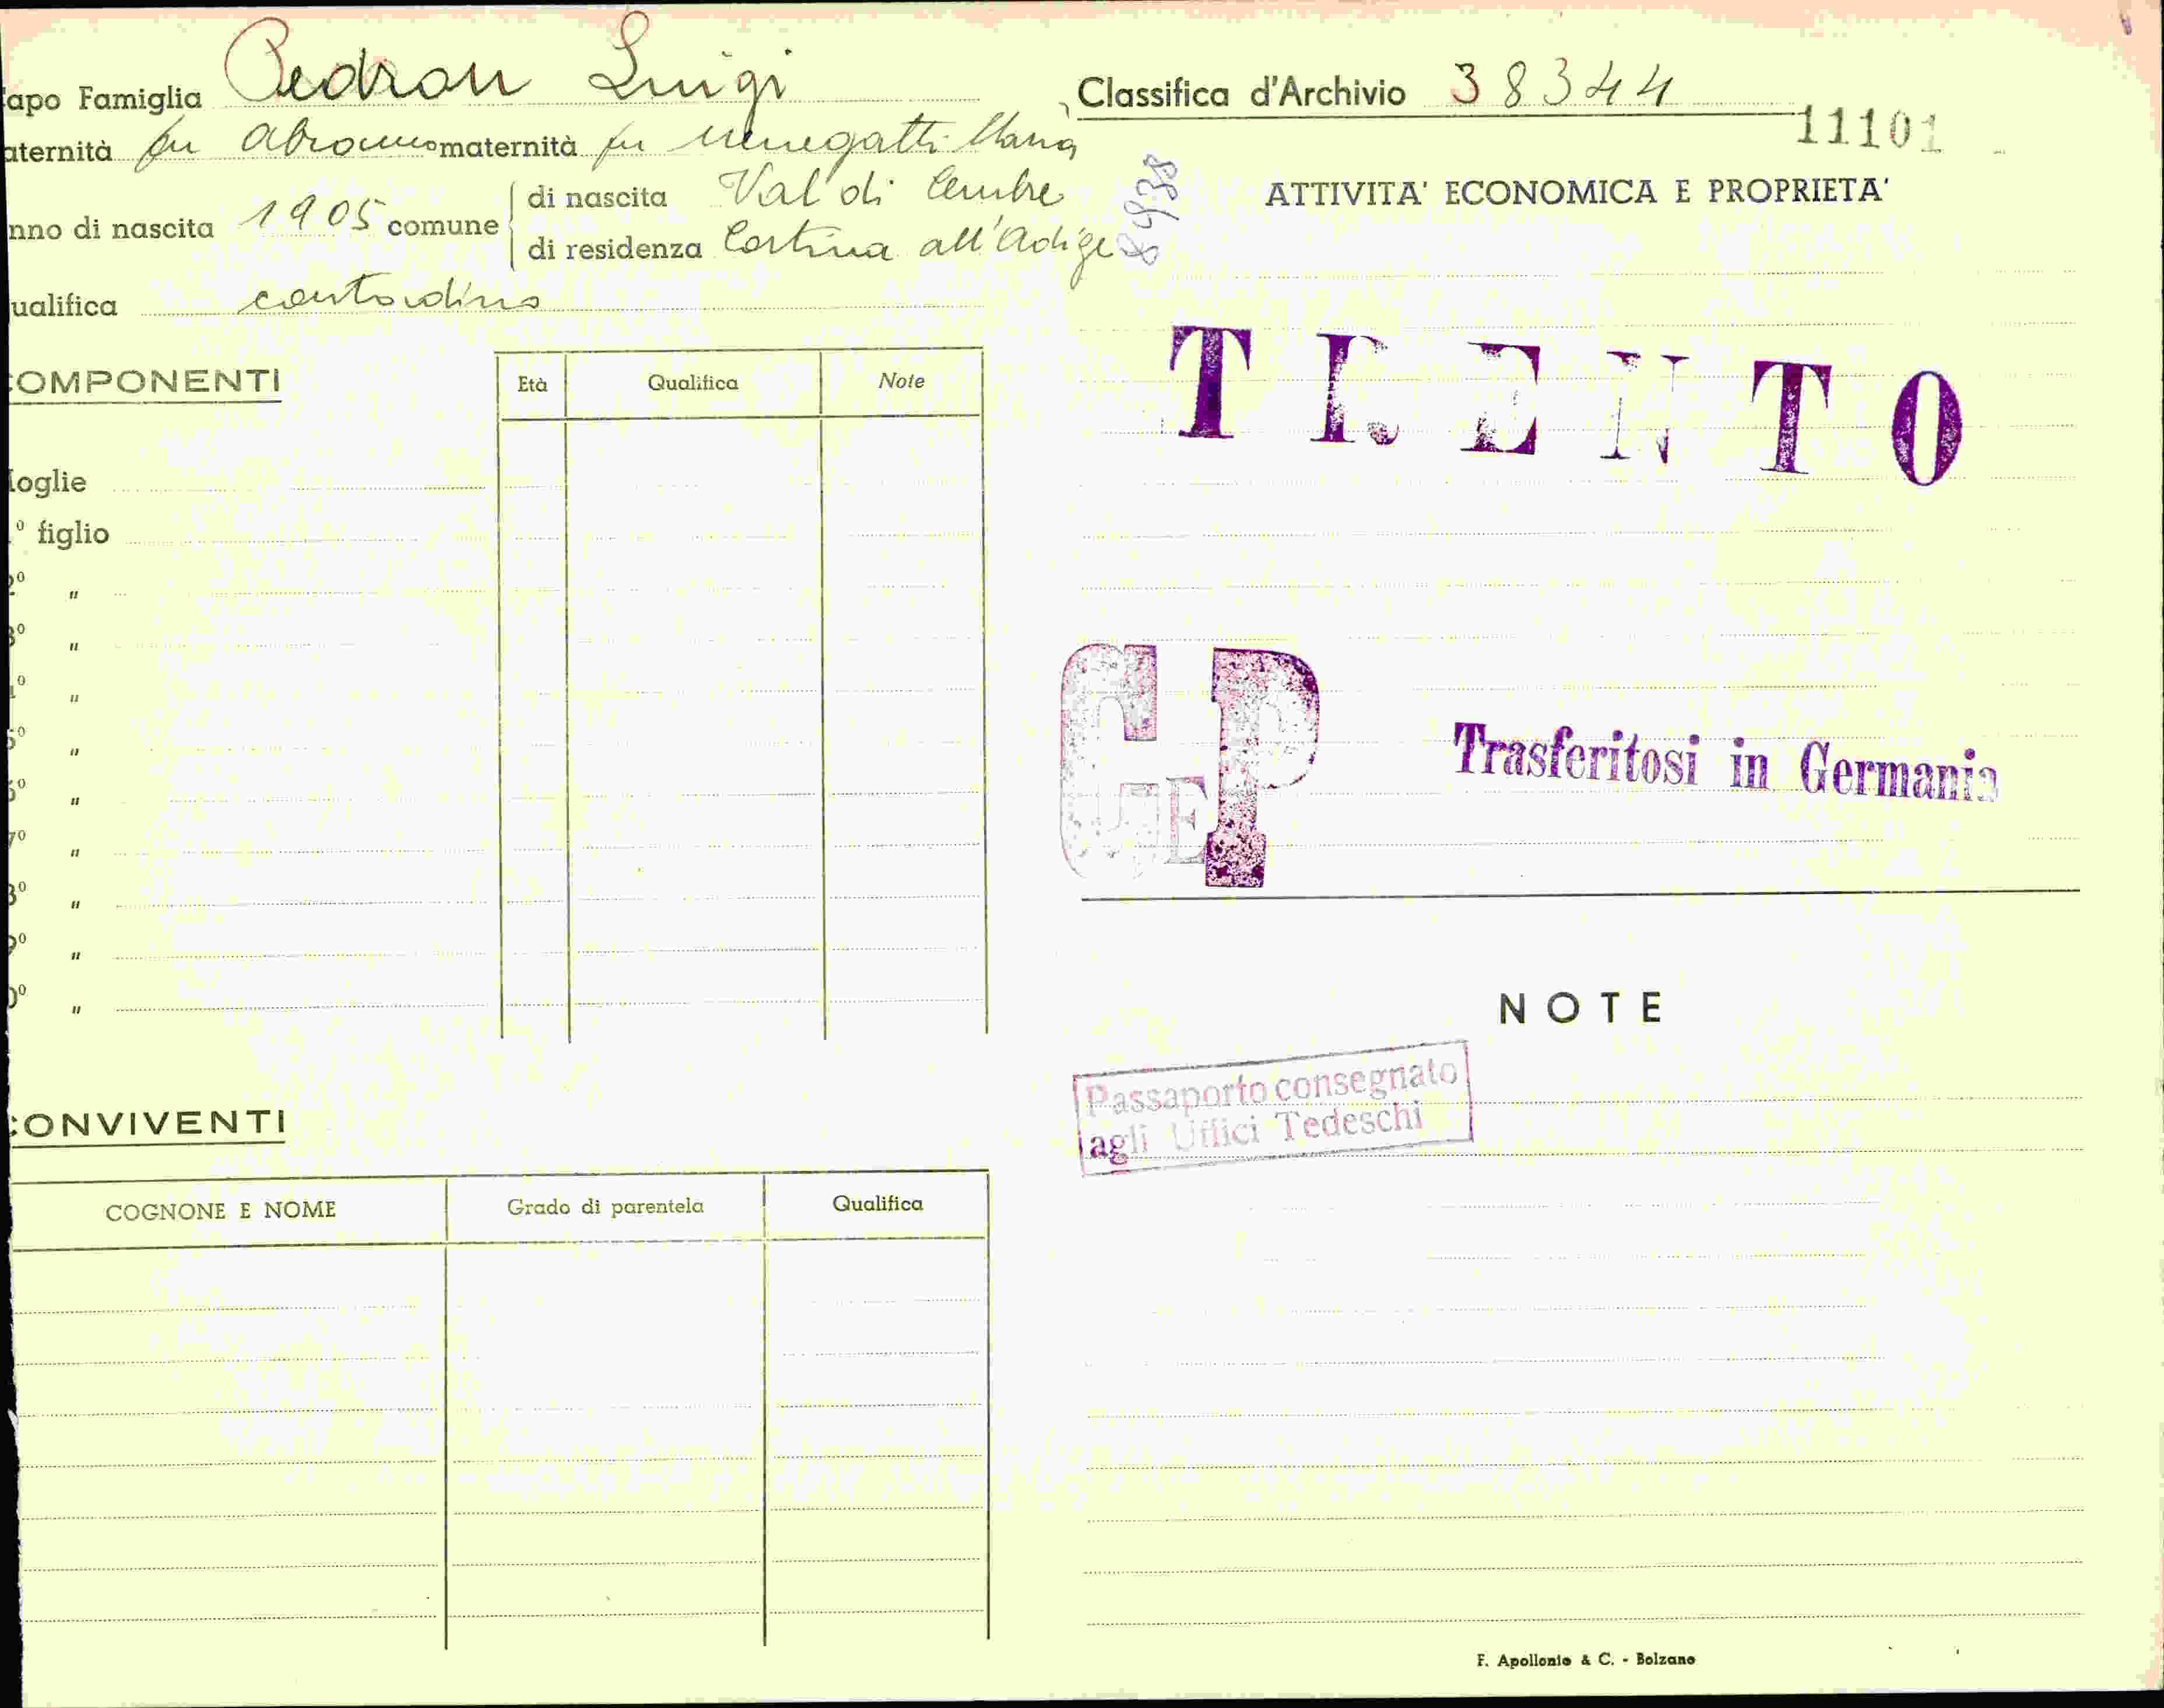 apo Famiglia Pedron Luigi
aternità fu Abramo maternità fu Menegatti Maria
nno di nascita 1905 comune di nascita Val di Cembre
di residenza Cortina all'Adige
ualifica contadino
OMPONENTI
Età Qualifica Note
oglie
º figlio
º "
3º "
º "
5º "
6º "
7º "
8º "
9º "
0º "
CONVIVENTI
COGNONE E NOME Grado di parentela Qualifica
Classifica d'Archivio 38344
11101
ATTIVITA' ECONOMICA E PROPRIETA'
TRENTO
CEP
Trasferitosi in Germania
NOTE
Passaporto consegnato
agli Uffici Tedeschi
F. Apollonio & C. - Bolzano